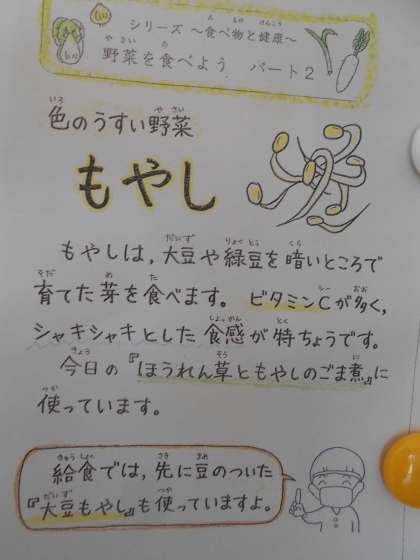 シリーズ ～食べ物と健康～
野菜を食べよう パート２
色のうすい野菜
もやし
もやしは，大豆や緑豆を暗いところで
育てた芽を食べます。 ビタミンCが多く，
シャキシャキとした食感が特ちょうです。
今日の『ほうれん草ともやしのごま煮』に
使っています。
給食では，先に豆のついた
『大豆もやし』も使っていますよ。